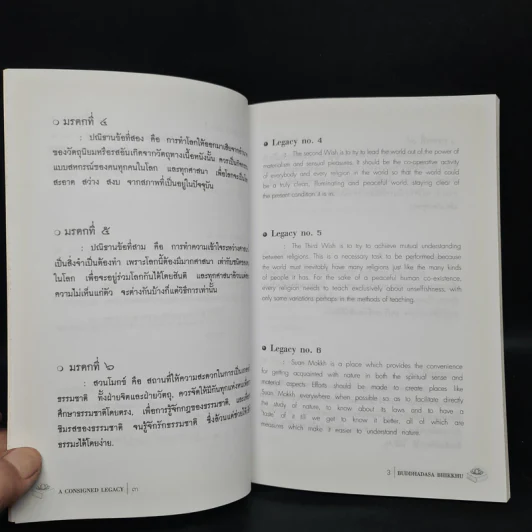 ๏ มรดกที่ ๔
: ปณิธานข้อที่สอง คือ การทำโลกให้ออกมาเสียจากอำนาจ
ของวัตถุนิยมหรือรสอันเกิดจากวัตถุทางเนื้อหนังนั้น ควรเป็นกิจกรรม
แบบสหกรณ์ของคนทุกคนในโลก และทุกศาสนา เพื่อโลกจะเป็นโลก
สะอาด สว่าง สงบ จากสภาพที่เป็นอยู่ในปัจจุบัน
๏ มรดกที่ ๕
: ปณิธานข้อที่สาม คือ การทำความเข้าใจระหว่างศาสนา
เป็นสิ่งจำเป็นต้องทำ เพราะโลกนี้ต้องมีมากศาสนา เท่ากับชนิดของ
ในโลก เพื่อจะอยู่ร่วมโลกกันได้โดยสันติ และทุกศาสนาล้วนแต่
ความไม่เห็นแก่ตัว จะต่างกันบ้างก็แต่วิธีการเท่านั้น
๏ มรดกที่ ๖
: สวนโมกข์ คือ สถานที่ให้ความสะดวกในการเป็น
ธรรมชาติ ทั้งฝ่ายจิตและฝ่ายวัตถุ, ควรจัดให้มีกันทุกแห่งหน
ศึกษาธรรมชาติโดยตรง, เพื่อการรู้จักกฎของธรรมชาติ, และเพื่อ
ชิมรสของธรรมชาติ จนรู้จักรักธรรมชาติ ซึ่งล้วนแต่ช่วยให้
ธรรมะได้โดยง่าย.
A CONSIGNED LEGACY
Legacy no. 4
: The second Wish is to try to lead the world out of the power of
materialism and sensual pleasures. It should be the co-operative activity
of everybody and every religion in the world so that the world could
be a truly clean, illuminating and peaceful world, staying clear of
the present condition it is in.
Legacy no. 5
: The Third Wish is to try to achieve mutual understanding
between religions. This is a necessary task to be performed because
the world must inevitably have many religions just like the many kinds
of people it has. For the sake of a peaceful human co-existence,
every religion needs to teach exclusively about unselfishness, with
only some variations perhaps in the methods of teaching.
Legacy no. 6
: Suan Mokkh is a place which provides the convenience
for getting acquainted with nature in both the spiritual sense and
material aspects. Efforts should be made to create places like
Suan Mokkh everywhere when possible so as to facilitate directly
the study of nature, to know about its laws and to have a
"taste" of it till we get to know it better, all of which are
measures which make it easier to 'understand nature'.
3 | BUDDHADASA BHIKKHU